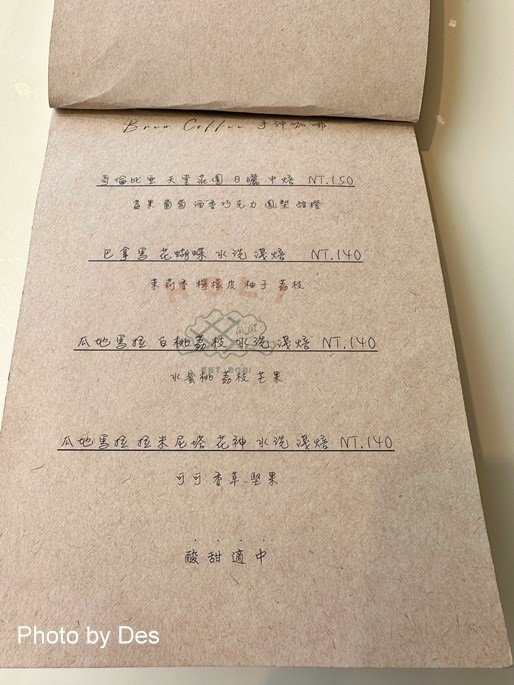 Brew Coffee 手沖咖啡
哥倫比亞 天堂莊園 日曬 中焙 NT.150
葡萄 酒香巧克力 鳳梨 甜橙
巴拿馬 花蝴蝶 水洗 淺焙 NT.140
茉莉香 檸檬皮 柚子 荔枝
瓜地馬拉 白桃荔枝 水洗 淺焙 NT.140
水蜜桃 荔枝 芒果
瓜地馬拉 拉米尼塔 花神 水洗 淺焙 NT.140
可可 香草 堅果
酸甜適中
Photo by Des